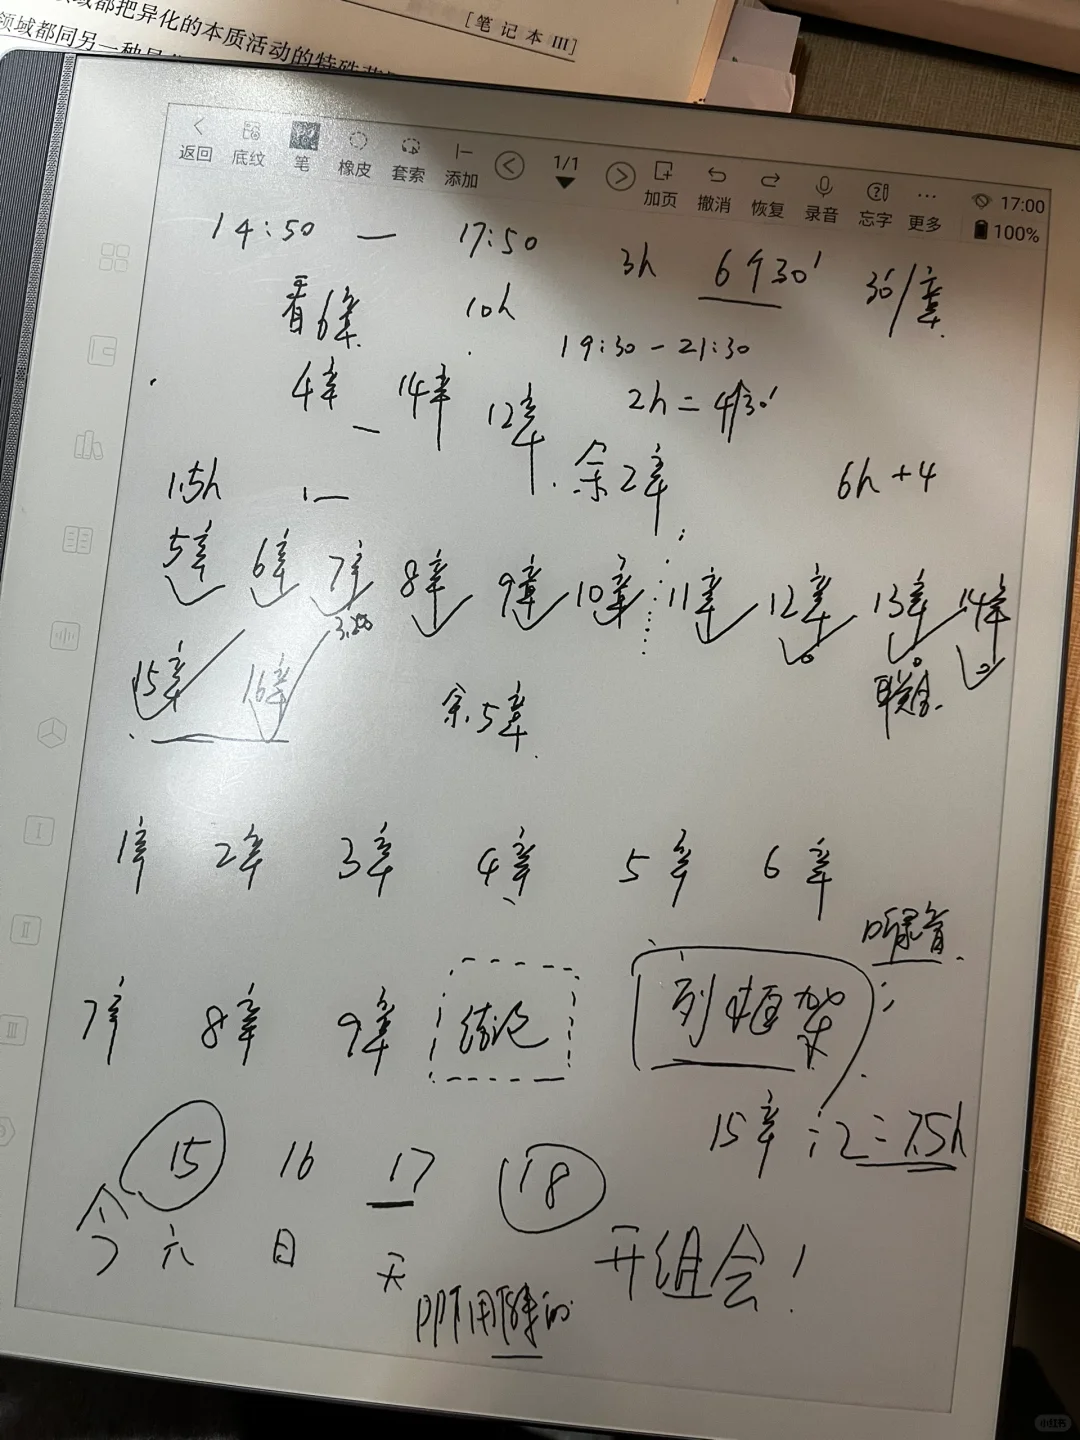 域都把异化的本质活动的特殊
领域都同另一种
[笔记本 III]
返回 底纹 笔 橡皮 套索 添加 1/1 加页 撤消 恢复 录音 忘字 更多 17:00 100%
14:50 — 17:50 3h 6个30' 30'/章
看6章 10h
19:30-21:30
4章 — 14章 12章 2h=4个30'
余2章 6h+4
1.5h 1—
5章 6章 7章 8章 9章 10章 11章 12章 13章 14章
15章 16章 余5章
1章 2章 3章 4章 5章 6章
听录音
7章 8章 9章 结论 列框架
15章÷2=7.5h
15 16 17 18
今 六 日 天 开组会!
PPT用
小红书